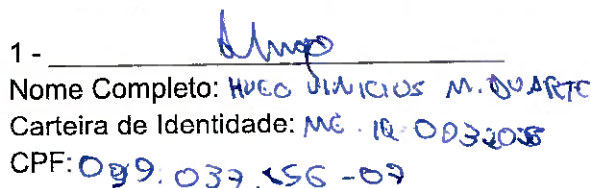 1 - Hugo
Nome Completo: HUGO VINICIUS M. DUARTE
Carteira de Identidade: MG.
CPF: 099.037.